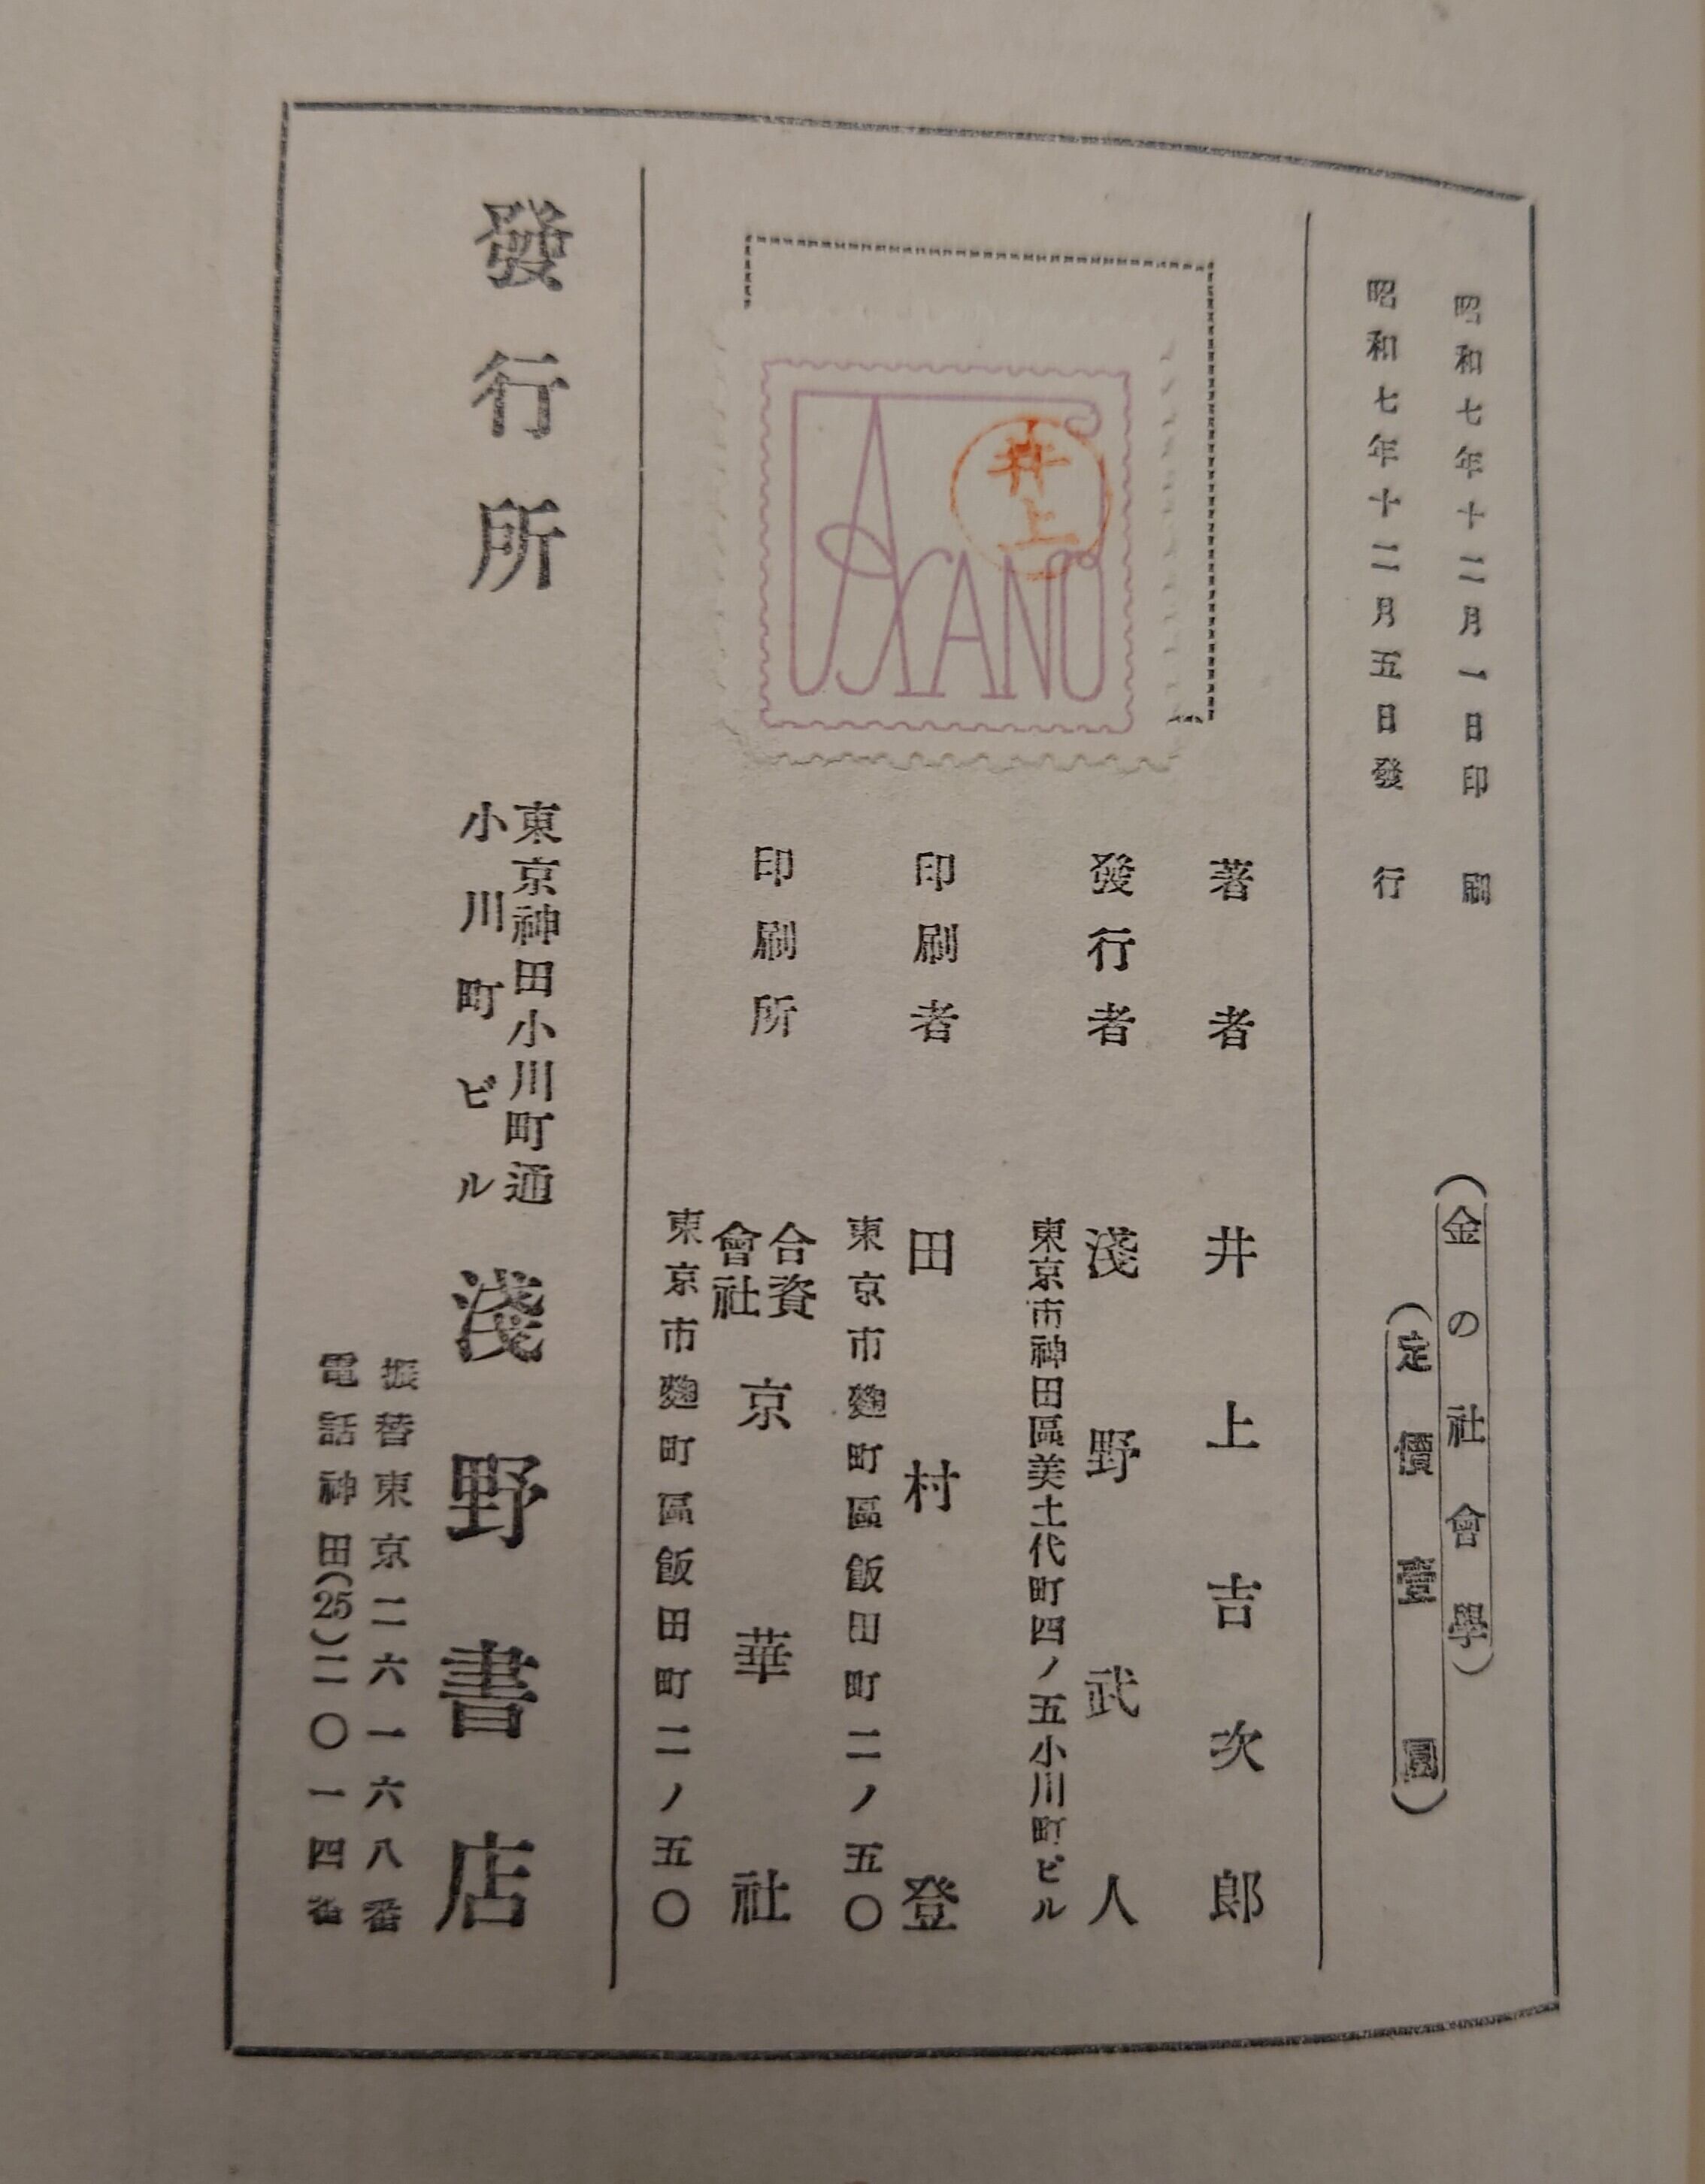 昭和七年十二月一日印刷
昭和七年十二月五日發行
(金の社會學)
(定價壹圓)
著者 井上吉次郎
發行者 淺野武人
東京市神田區美土代町四ノ五小川町ビル
印刷者 田村登
東京市麴町區飯田町二ノ五〇
印刷所 合資會社 京華社
東京市麴町區飯田町二ノ五〇
ASANO
井上
發行所
東京神田小川町通
小川町ビル
淺野書店
振替東京二六一六八番
電話神田(25)二〇一四番